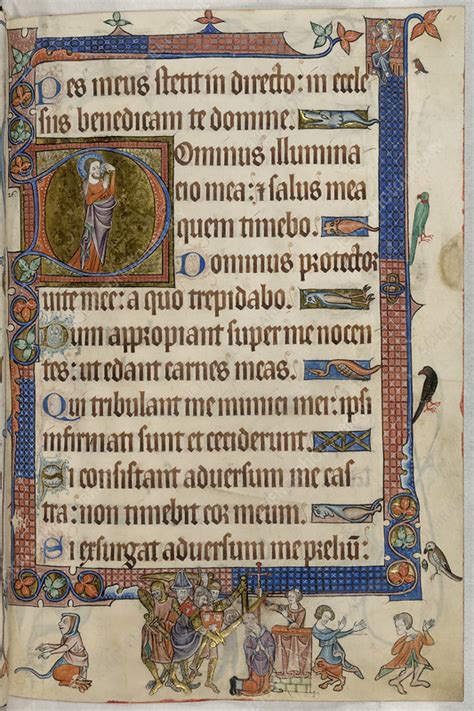 Pes meus stetit in directo: in eccle
siis benedicam te domine.
Dominus illumina
cio mea: & salus mea
quem timebo.
Dominus protector
uite mee: a quo trepidabo.
Dum appropiant super me nocen
tes: ut edant carnes meas.
Qui tribulant me inimici mei: ipsi
infirmati sunt et ceciderunt.
Si consistant aduersum me cas
tra: non timebit cor meum.
Si exsurgat aduersum me preliū: